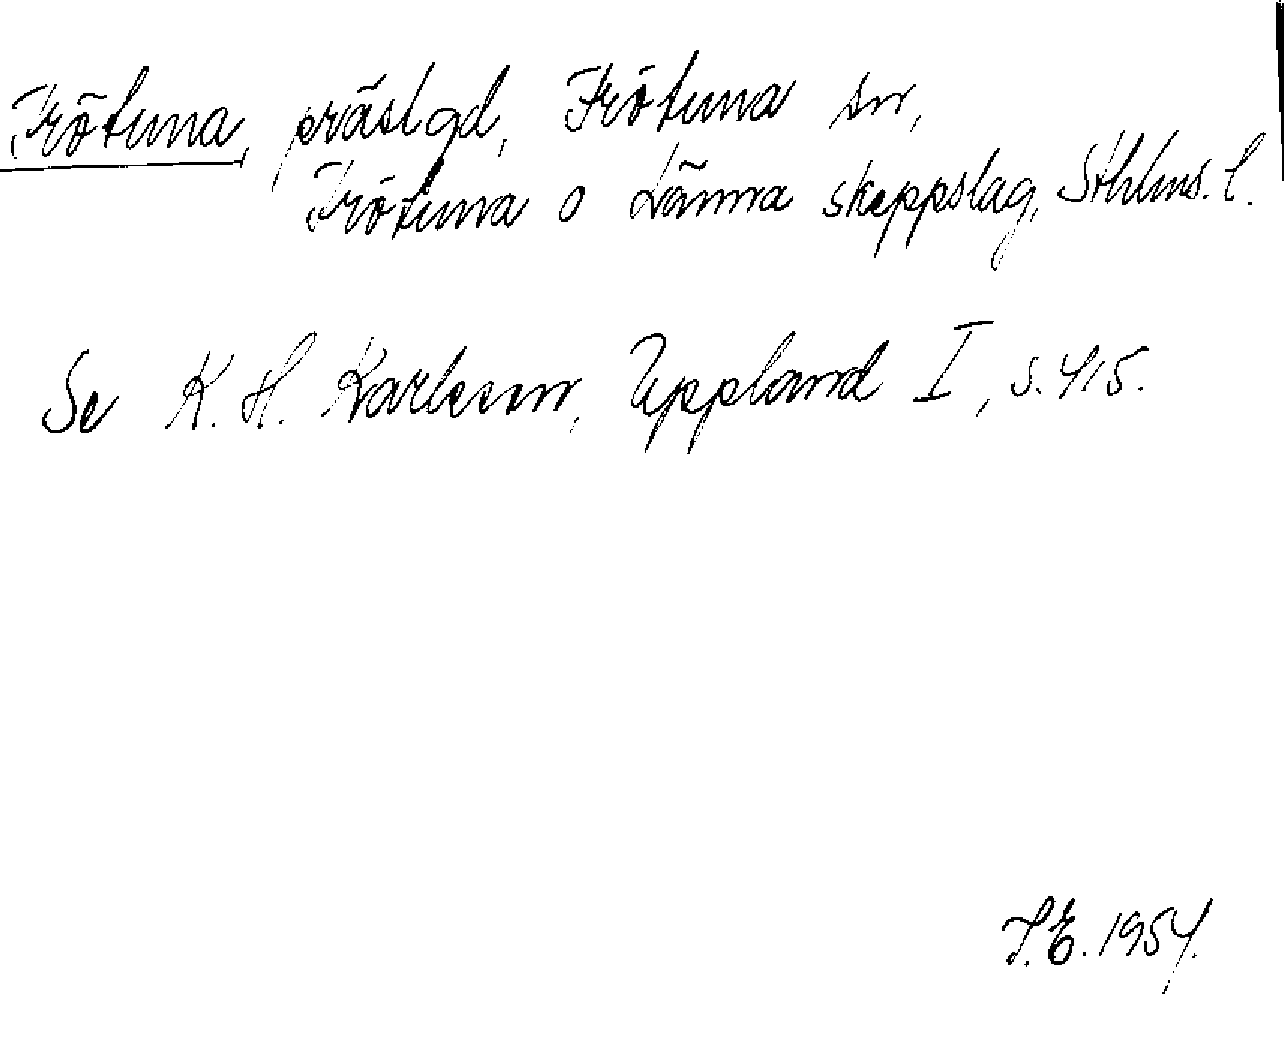 Frötuna, prästgd, Frötuna sn,
Frötuna o Länna skeppslag, Sthlms. l.
Se K. H. Karlsson, Uppland I, s. 415.
I.E. 1954.